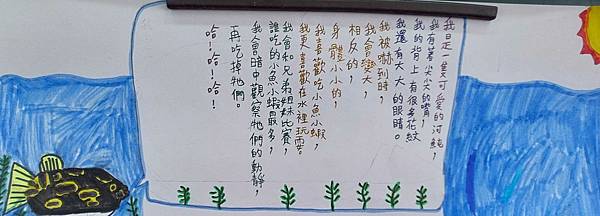 我是一隻可愛的河魨，
我有著尖尖的嘴，
我的背上有很多花紋，
我還有大大的眼睛。
我被嚇到時，
我會變大，
相反的，
身體小小的，
我喜歡吃小魚小蝦，
我更喜歡在水裡玩耍。
我會和兄弟姐妹比賽，
誰吃的小魚小蝦最多，
我會暗中觀察牠們的動靜，
再吃掉牠們。
哈！哈！哈！